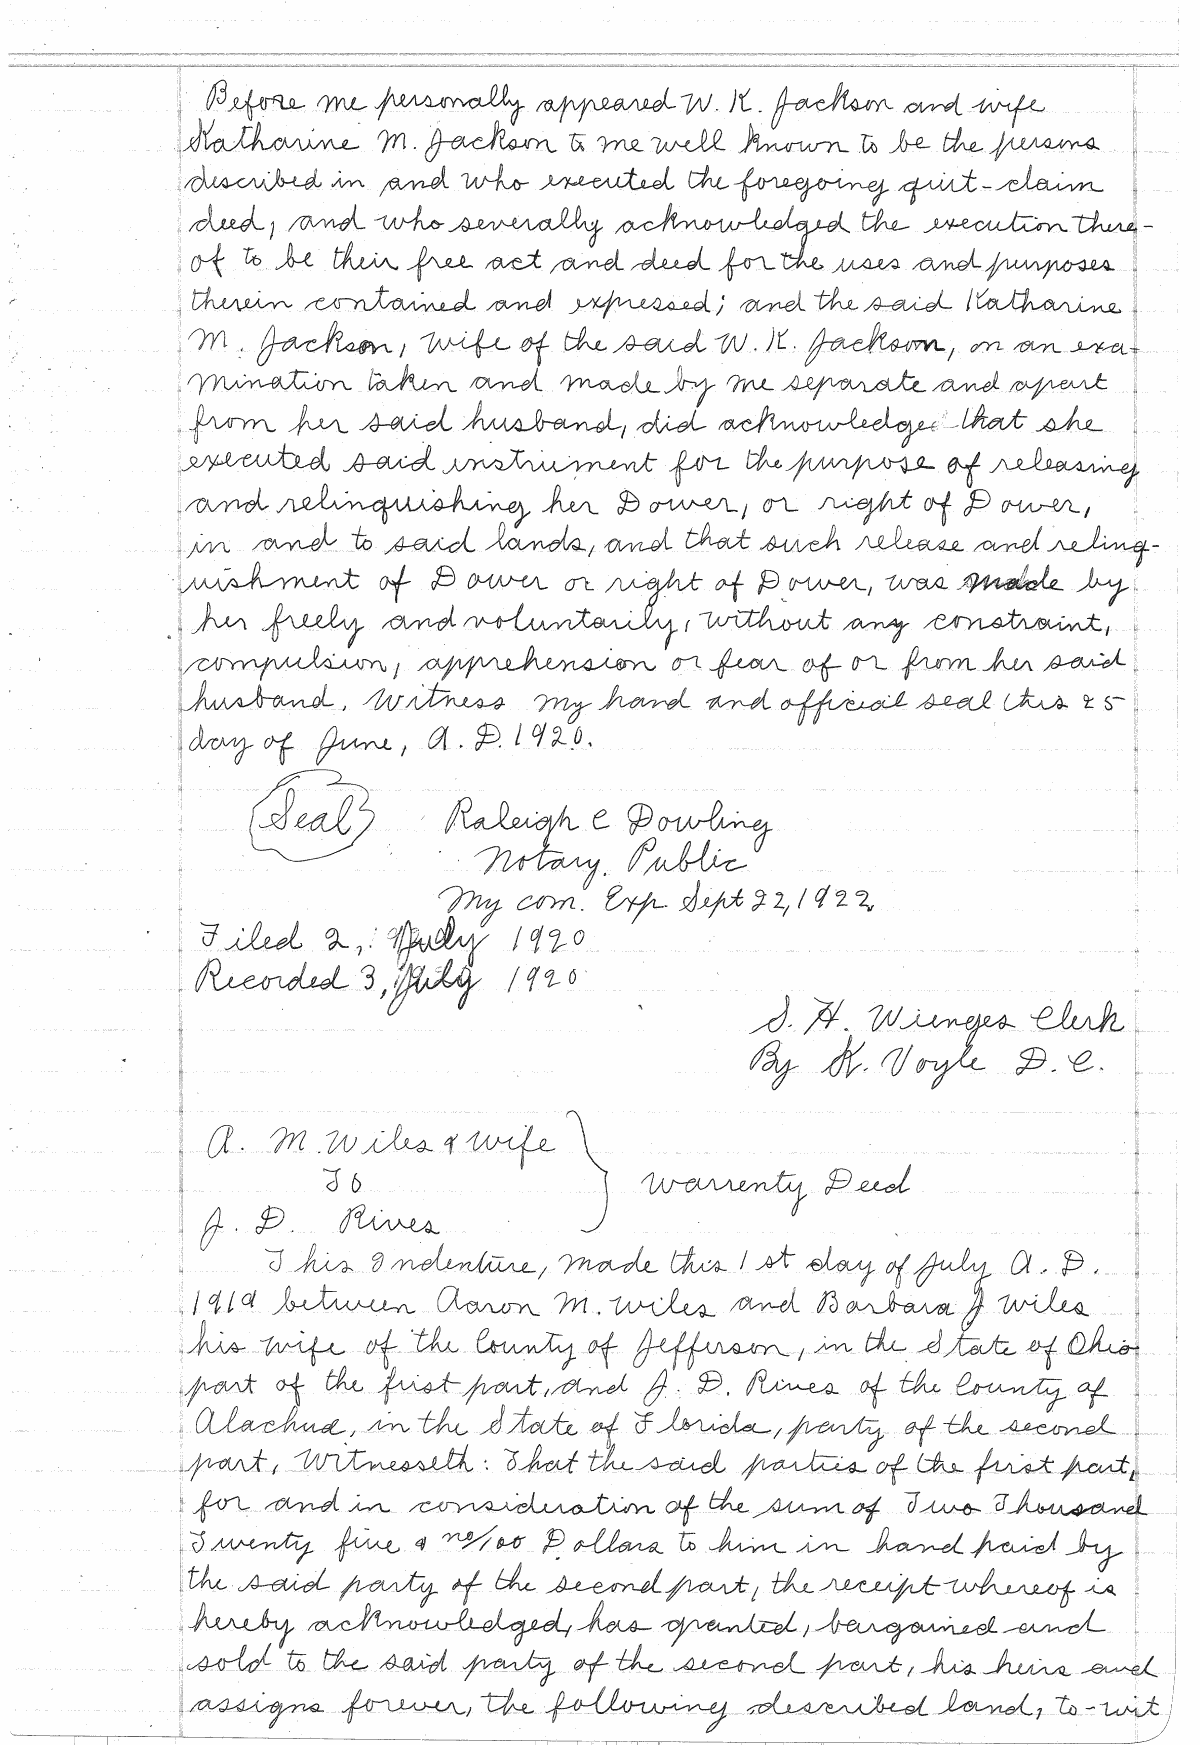 Before me personally appeared W. K. Jackson and wife
Katharine M. Jackson to me well known to be the persons
described in and who executed the foregoing quit-claim
deed, and who severally acknowledged the execution there-
of to be their free act and deed for the uses and purposes
therein contained and expressed; and the said Katharine
M. Jackson, wife of the said W. K. Jackson, on an exa-
mination taken and made by me separate and apart
from her said husband, did acknowledge that she
executed said instrument for the purpose of releasing
and relinquishing her Dower, or right of Dower,
in and to said lands, and that such release and relinq-
uishment of Dower or right of Dower, was made by
her freely and voluntarily, without any constraint,
compulsion, apprehension or fear of or from her said
husband. Witness my hand and official seal this 25
day of June, A. D. 1920.
(Seal) Raleigh C Dowling
Notary. Public
My com. Exp Sept 22, 1922
Filed 2, July 1920
Recorded 3, July 1920
S. H. Wienges Clerk
By K. Voyle D. C.
A. M. Wiles & wife
To
Warrenty Deed
J. D. Rives
This Indenture, Made this 1st day of July A. D.
1919 between Aaron M. Wiles and Barbara J Wiles
his wife of the County of Jefferson, in the State of Ohio
part of the frist part, and J. D. Rives of the County of
Alachua, in the State of Florida, party of the second
part, Witnesseth: That the said parties of the first part,
for and in consideration of the sum of Two Thousand
Twenty five & no/100 Dollars to him in hand paid by
the said party of the second part, the receipt whereof is
hereby acknowledged, has granted, bargained and
sold to the said party of the second part, his heirs and
assigns forever, the following described land, to-wit